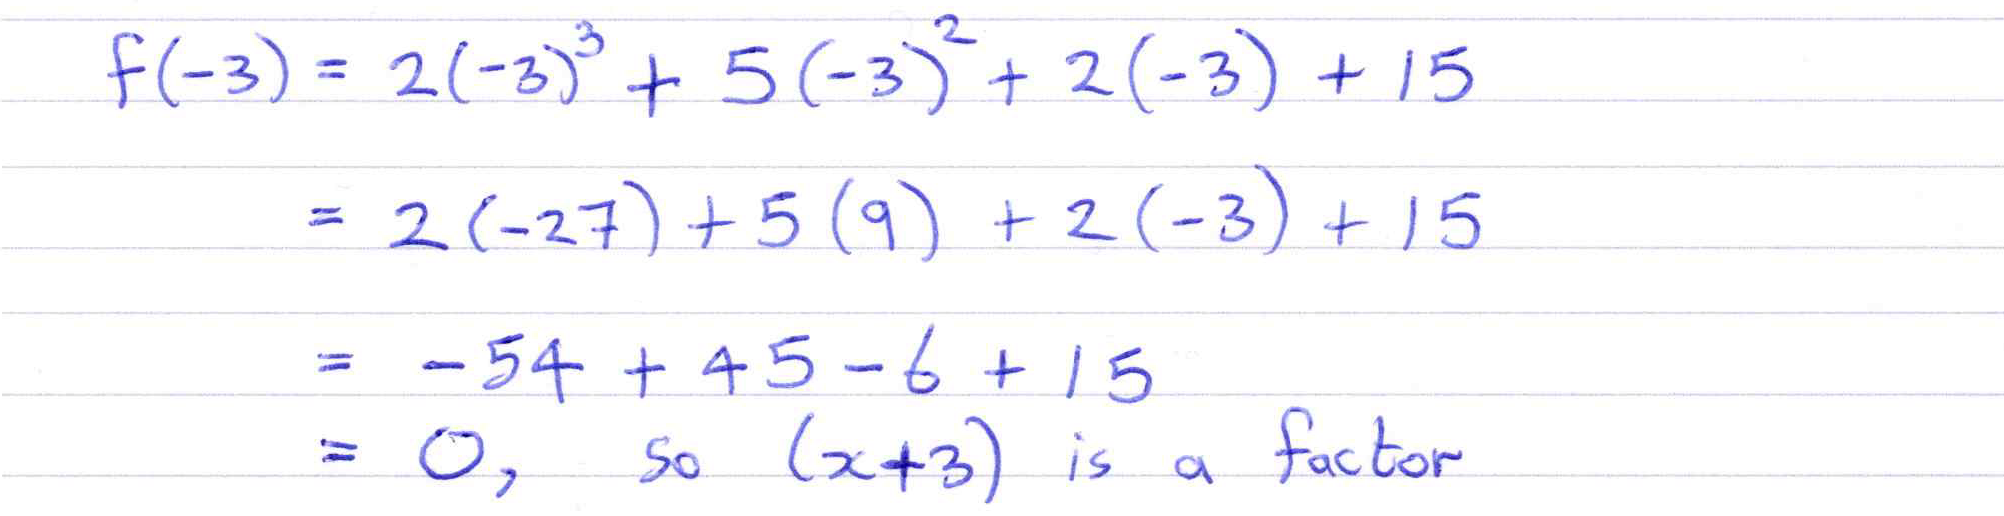 f(-3) = 2(-3)³ + 5(-3)² + 2(-3) + 15
= 2(-27) + 5(9) + 2(-3) + 15
= -54 + 45 - 6 + 15
= 0, so (x+3) is a factor